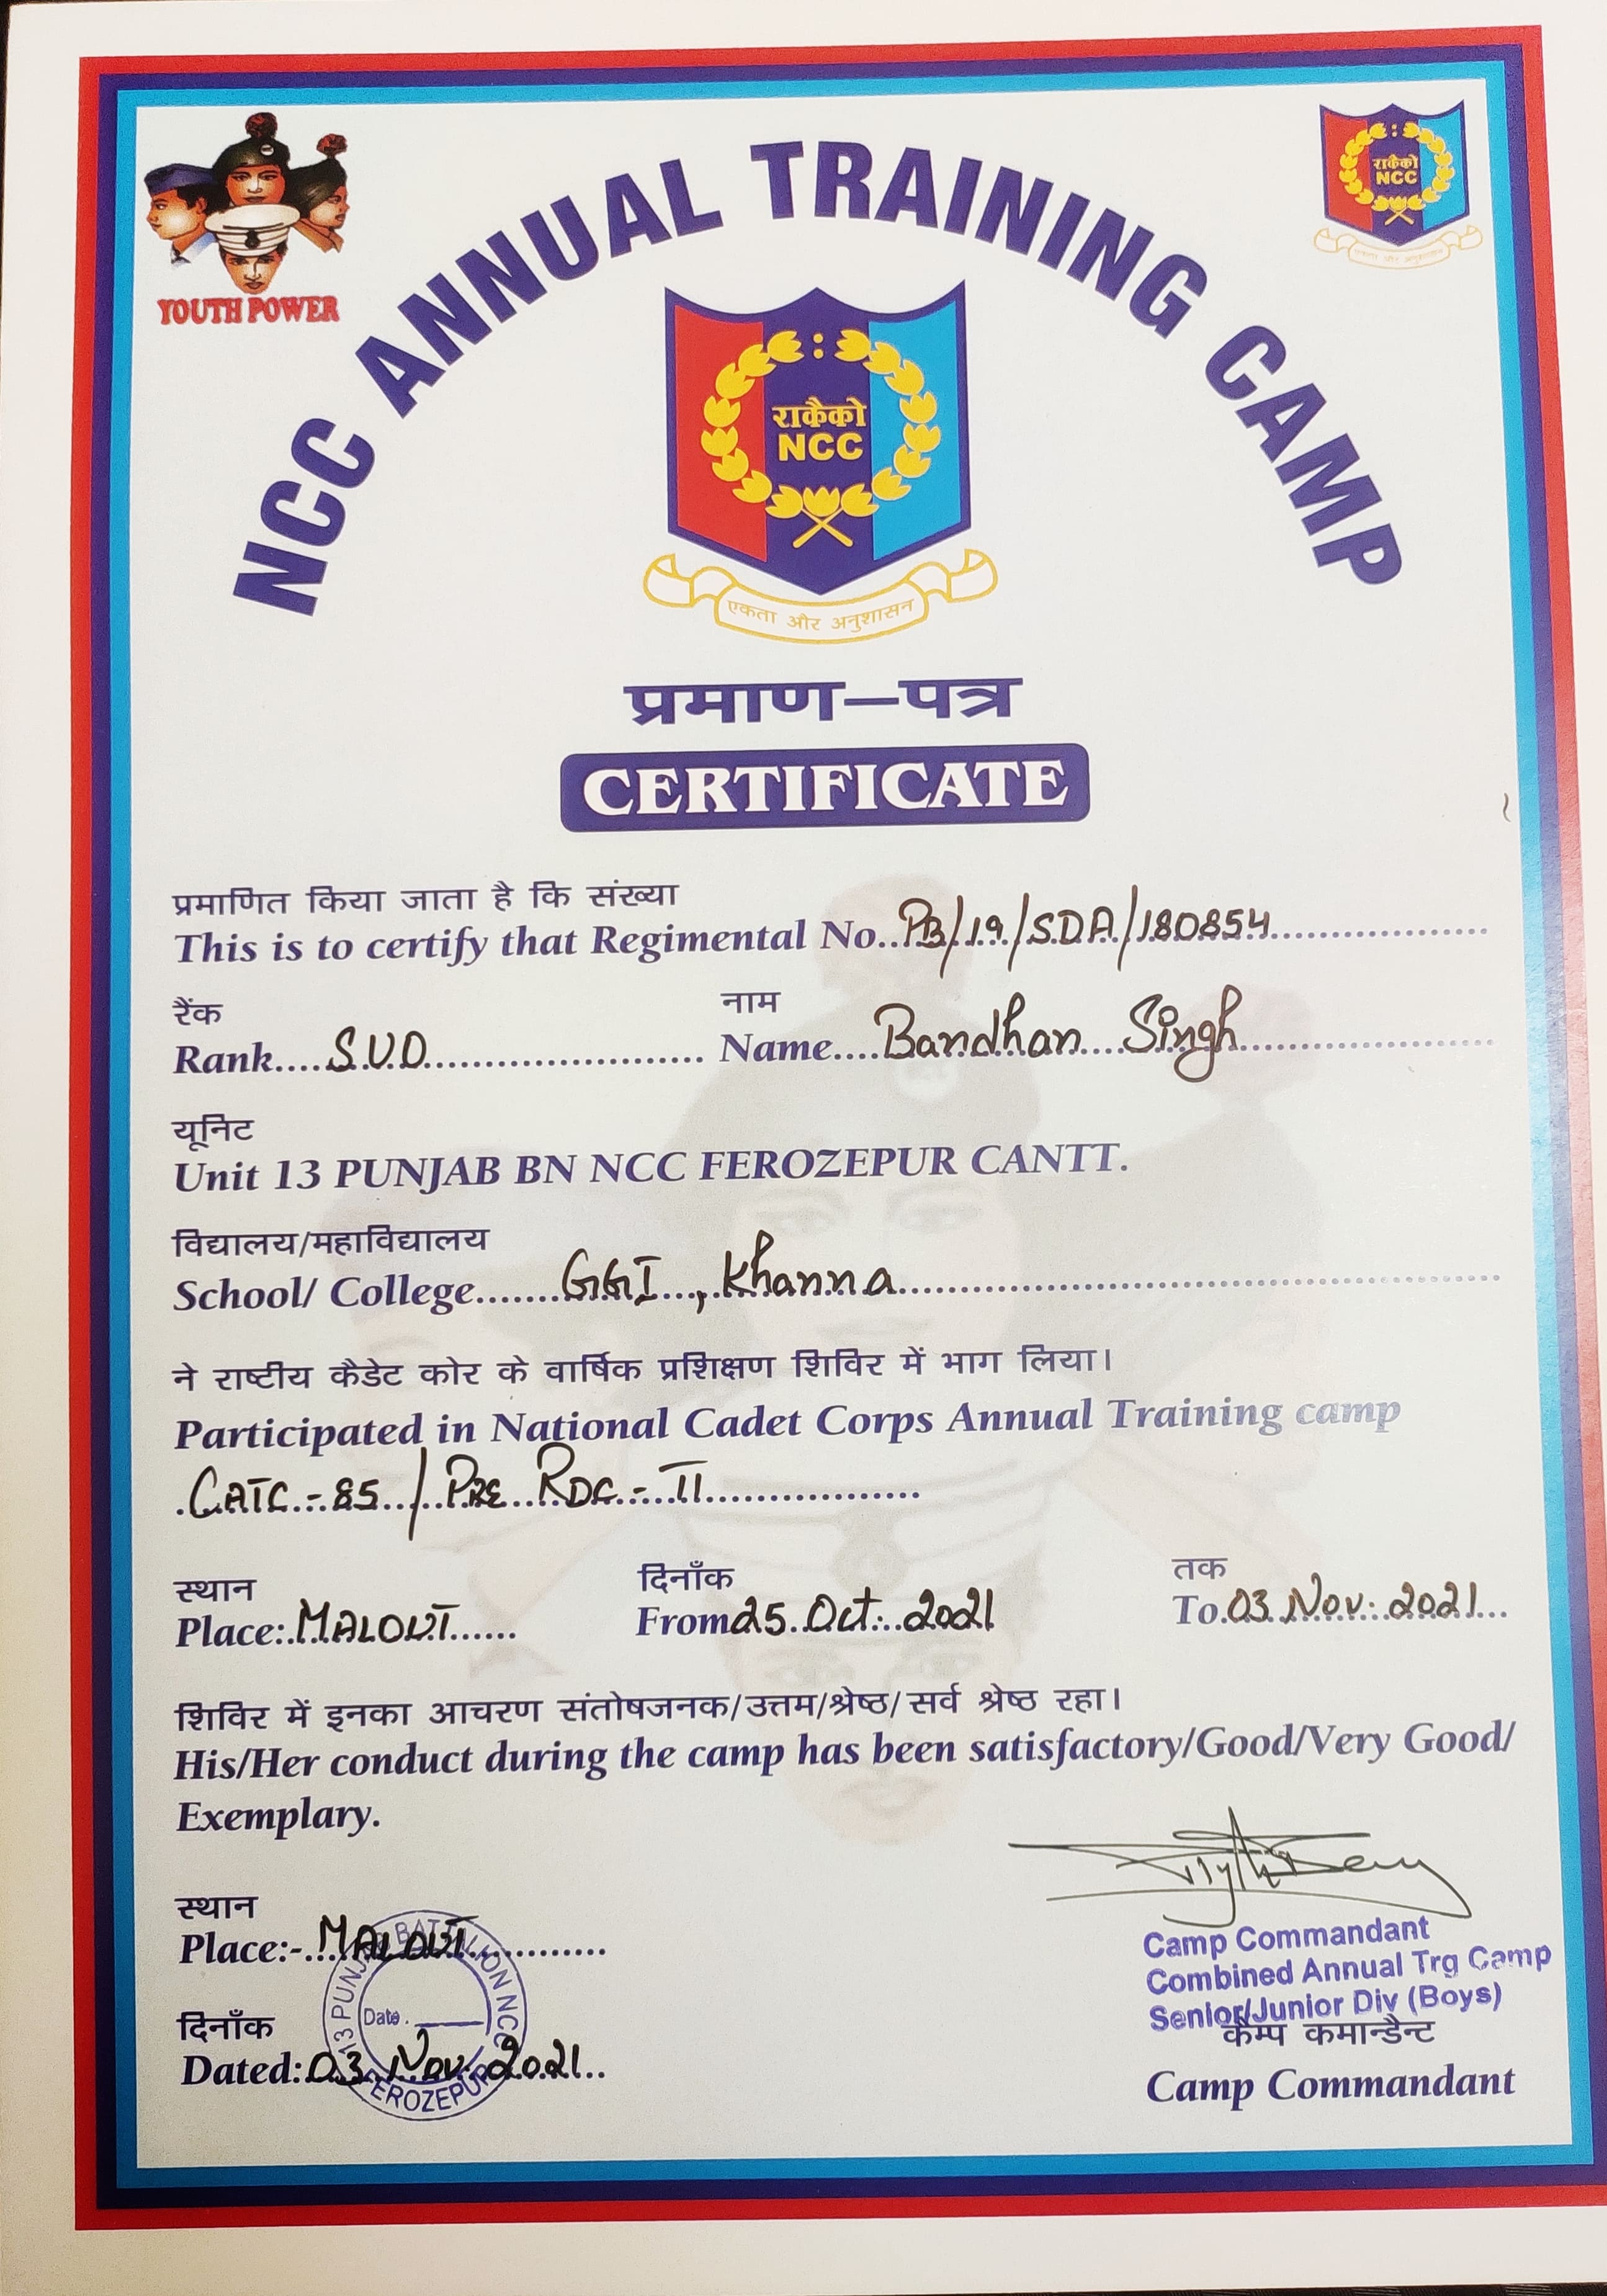 YOUTH POWER
NCC ANNUAL TRAINING CAMP
राकैको
NCC
राकैको
NCC
एकता और अनुशासन
प्रमाण–पत्र
CERTIFICATE
प्रमाणित किया जाता है कि संख्या
This is to certify that Regimental No..PB/19/SDA/180854
रैंक नाम
Rank....S.U.O........ Name....Bandhan Singh
यूनिट
Unit 13 PUNJAB BN NCC FEROZEPUR CANTT.
विद्यालय/महाविद्यालय
School/ College.......GGI, Khanna
ने राष्टीय कैडेट कोर के वार्षिक प्रशिक्षण शिविर में भाग लिया।
Participated in National Cadet Corps Annual Training camp
CATC-85/PRE RDC-II
स्थान दिनाँक तक
Place:.MALOUT...... From 25 Oct. 2021 To.03 Nov. 2021...
शिविर में इनका आचरण संतोषजनक/उत्तम/श्रेष्ठ/सर्व श्रेष्ठ रहा।
His/Her conduct during the camp has been satisfactory/Good/Very Good/
Exemplary.
स्थान
Place:-.MALOUT
13 PUNJAB BATTALION NCC
Date.
FEROZEPUR
दिनाँक
Dated:03 Nov. 2021..
Camp Commandant
Combined Annual Trg Camp
Senior/Junior Div (Boys)
कैम्प कमान्डैन्ट
Camp Commandant